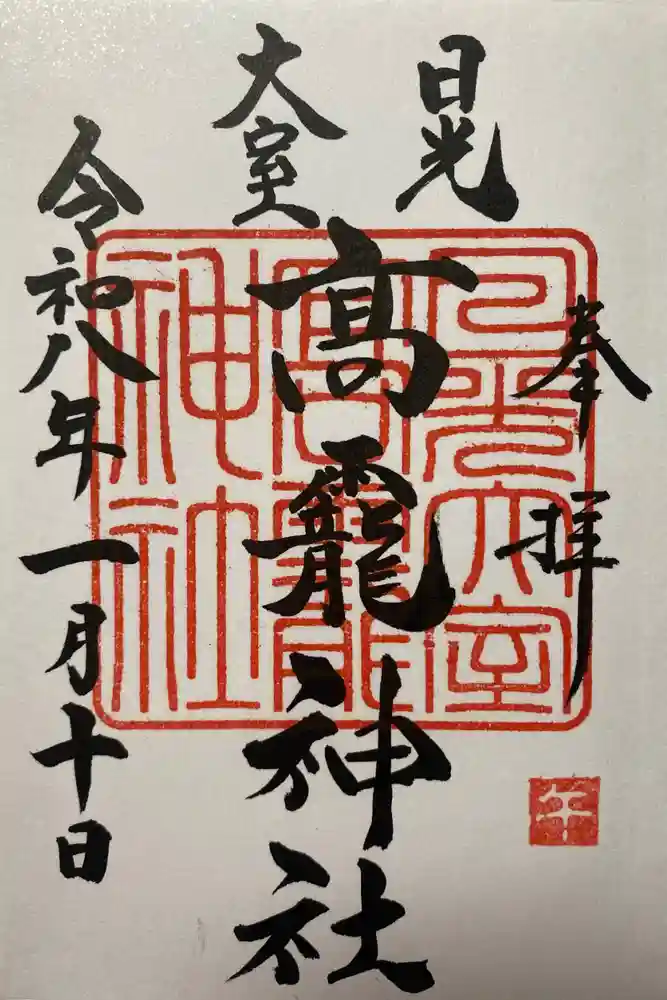 日光
大室
奉拝
高龗神社
令和八年一月十日
日光大室
高龗
神社
午